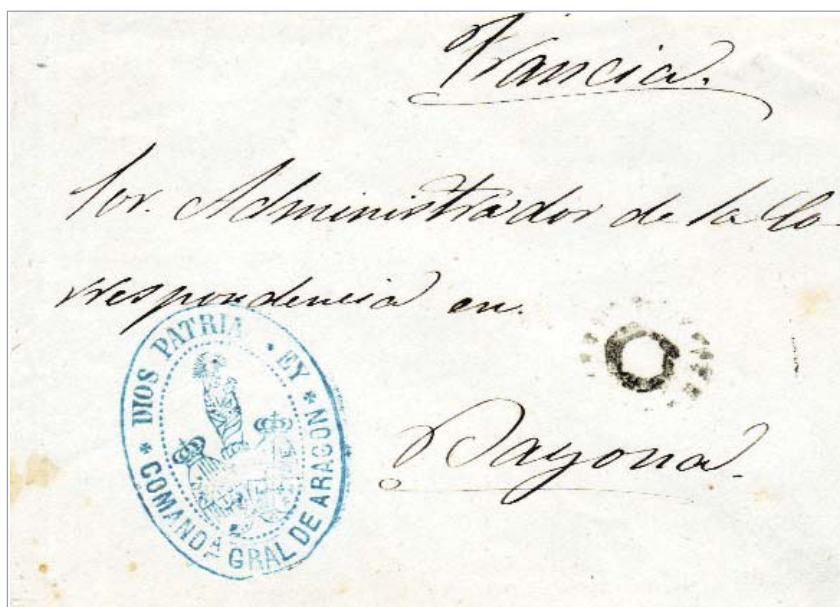 Francia.
Sor. Administrador de la Co-
rrespondencia en.
Bayona.
* DIOS PATRIA * EY *
COMANDA GRAL DE ARAGON